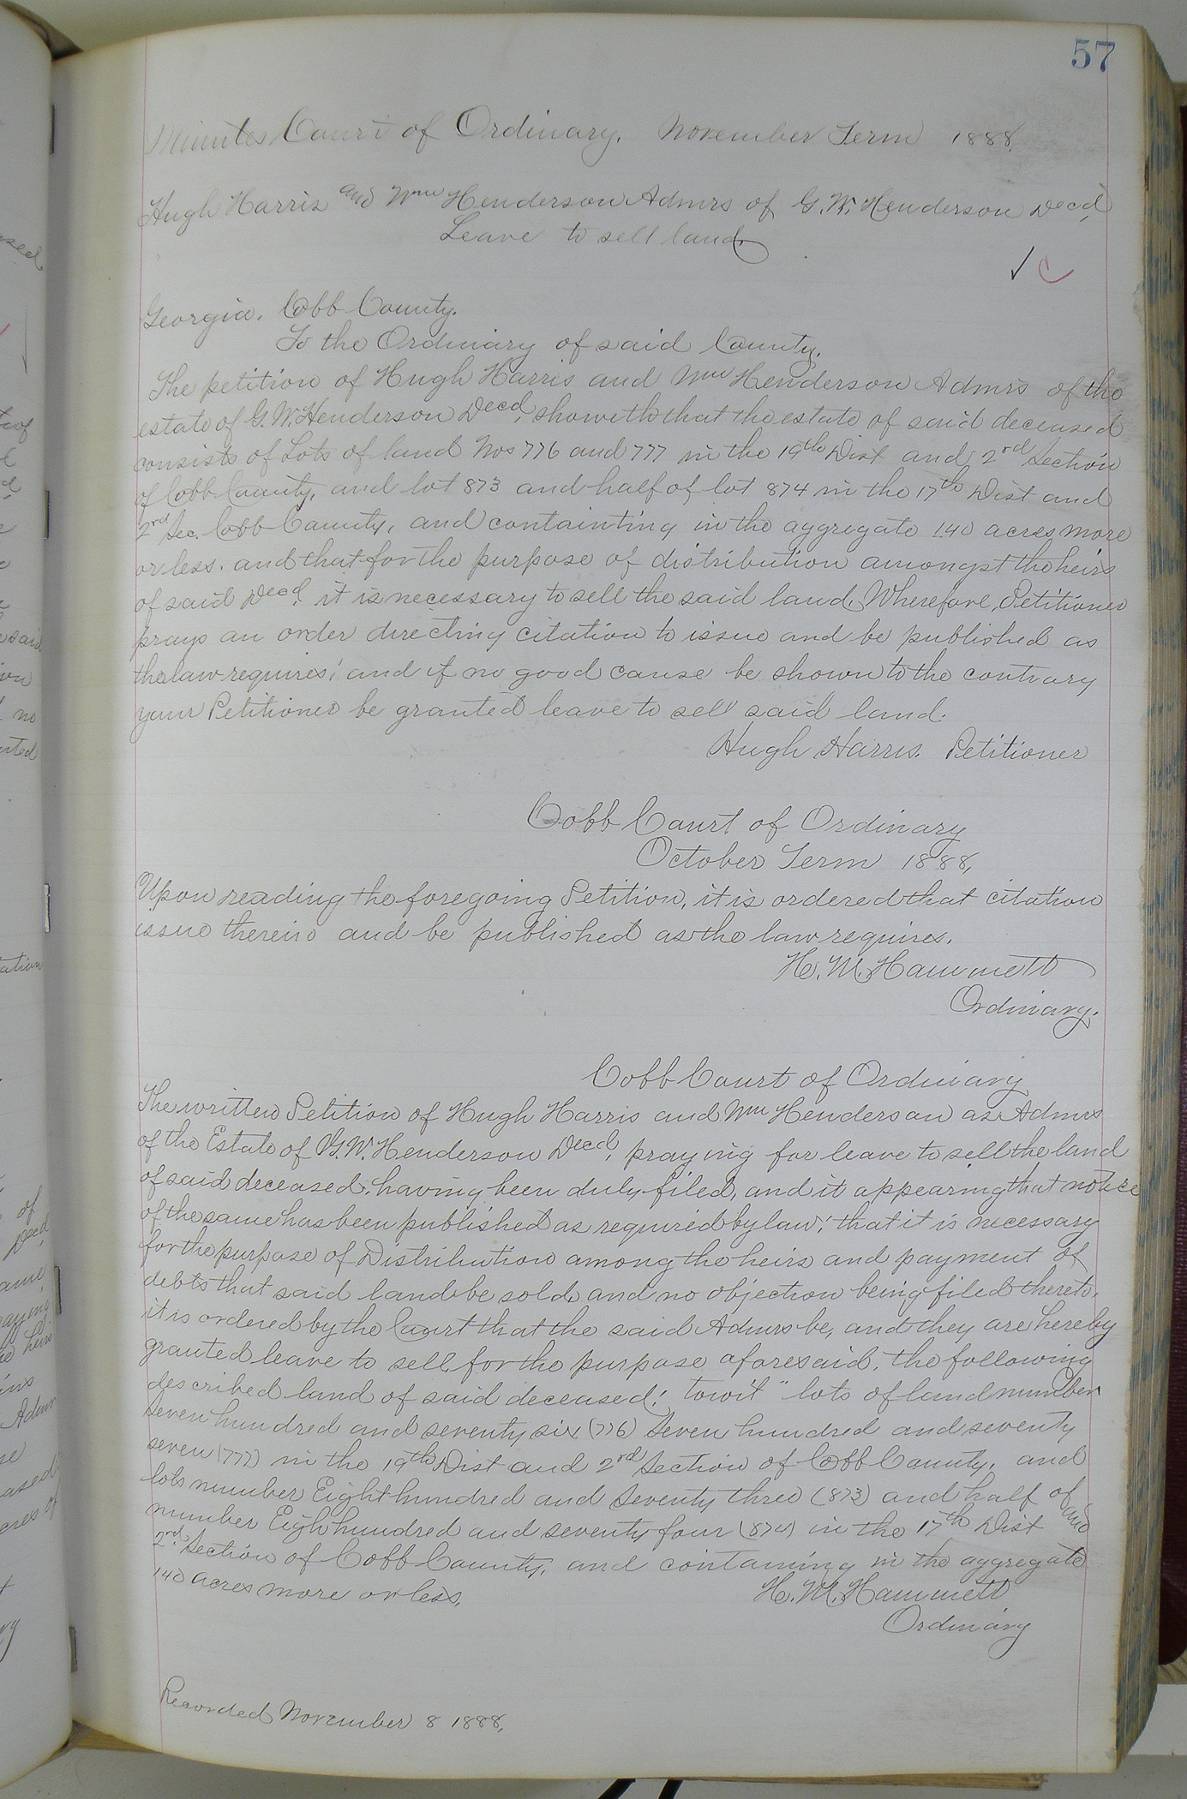 57
Minutes Court of Ordinary. November Term 1888.
Hugh Harris and Wm Henderson Admrs of G. W. Henderson Decd,
Leave to sell land
Georgia. Cobb County.
To the Ordinary of said County.
The petition of Hugh Harris and Wm Henderson Admrs of the
estate of G. W. Henderson Decd, showeth that the estate of said deceased
consists of Lots of land Nos 776 and 777 in the 19th Dist and 2rd Section
of Cobb County, and lot 873 and half of lot 874 in the 17th Dist and
2rd Sec. Cobb County, and containting in the aggregate 140 acres more
or less. and that for the purpose of distribution amongst the heirs
of said Decd. it is necessary to sell the said land. Wherefore, Petitioner
prays an order directing citation to issue and be published as
the law requires; and if no good cause be shown to the contrary
your Petitioner be granted leave to sell said land.
Hugh Harris. Petitioner
Cobb Court of Ordinary
October Term 1888,
Upon reading the foregoing Petition, it is ordered that citation
issue therein and be published as the law requires.
H. M. Hammett
Ordinary.
Cobb Court of Ordinary
The written Petition of Hugh Harris and Wm Henderson as Admrs
of the Estate of G. W. Henderson Decd, praying for leave to sell the land
of said deceased, having been duly filed, and it appearing that notice
of the same has been published as required by law; that it is necessary
for the purpose of Distribution among the heirs and payment of
debts that said land be sold, and no objection being filed thereto,
it is ordered by the Court that the said Admrs be, and they are hereby
granted leave to sell for the purpose aforesaid, the following
described land of said deceased; towit" lots of land number
seven hundred and seventy six (776) Seven hundred and seventy
seven (777) in the 19th Dist and 2rd Section of Cobb County, and
lots number Eight hundred and Seventy three (873) and half of
number Eigh hundred and seventy four (874) in the 17th Dist and
2rd Section of Cobb County, and containing in the aggregate
140 acres more or less.
H. M. Hammett
Ordinary
Recorded November 8 1888,